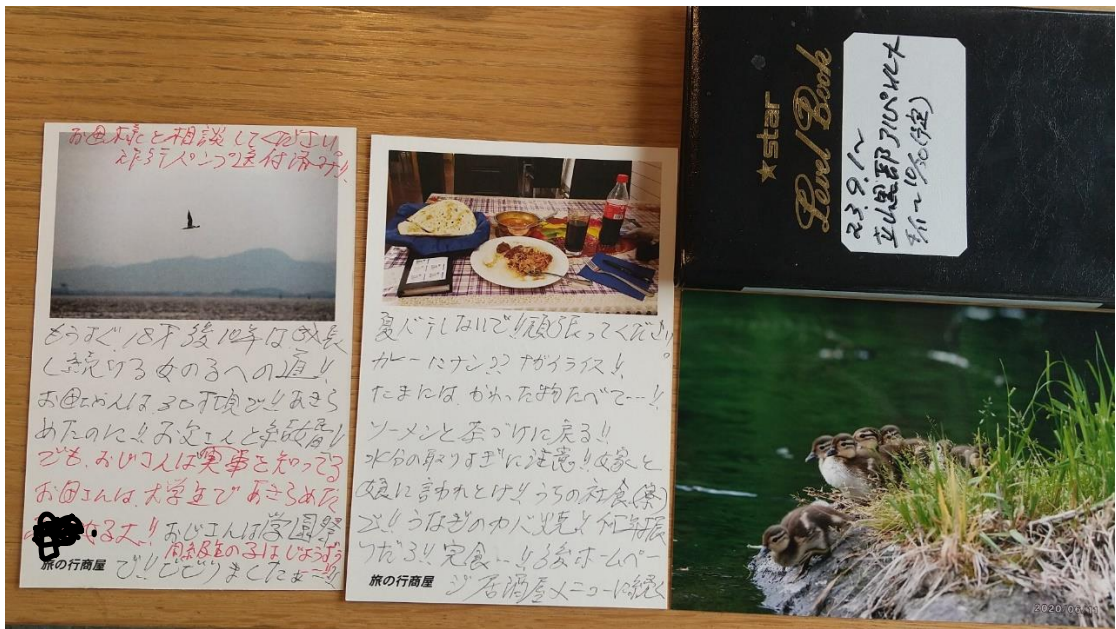 お母様と相談してください
送付済み!!
もうすぐ18才 後10年は成長
し続ける女の子への道!!
お母ちゃんは、30才頃で!!あきら
めたのに!!お父さんと結婚!!
でも、おじさんは真事を知ってる
お母さんは、大学生であきらめた
おじさんは学園祭
で!!びびりましたぁー!!
旅の行商屋
夏バテしないで!!頑張ってください
カレーにナン??ナガイライス!!
たまには、かわった物たべて…!!
ソーメンと茶づけに戻る!!
水分の取りすぎに注意!!嫁と
娘に言われとけ!!うちの社食(寮)
で!!うなぎのカバ焼!!
つだろ!!定食…!!後ホームペー
ジ居酒屋メニューに続く
旅の行商屋
★star
Level Book
23.9.1~
立山黒部アルペンルート
~10/30(予定)
2020/06/11